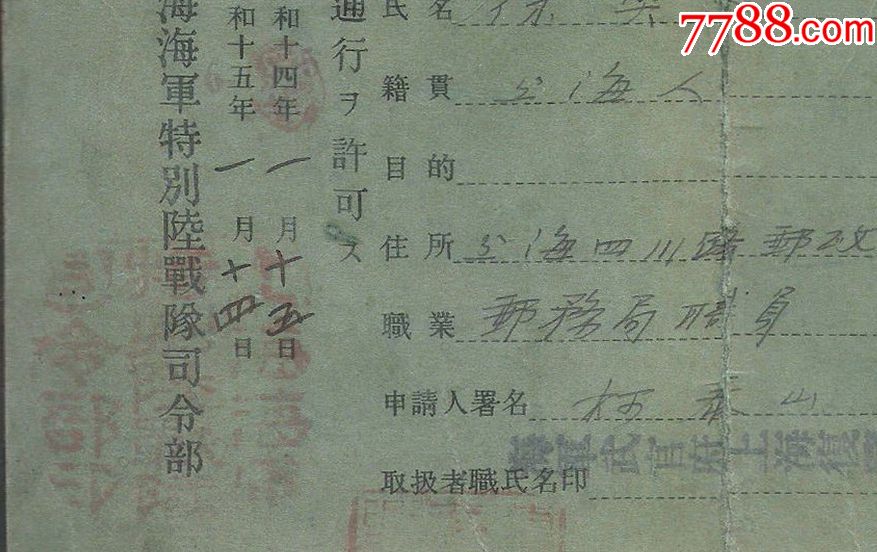 7788.com
氏名
籍貫 上海人
目的
住所 上海四川路郵政
職業 郵務局職員
申請人署名
取扱者職氏名印
通行ヲ許可ス
和十四年一月十五日
和十五年一月十四日
海海軍特別陸戰隊司令部
海軍武官府上海